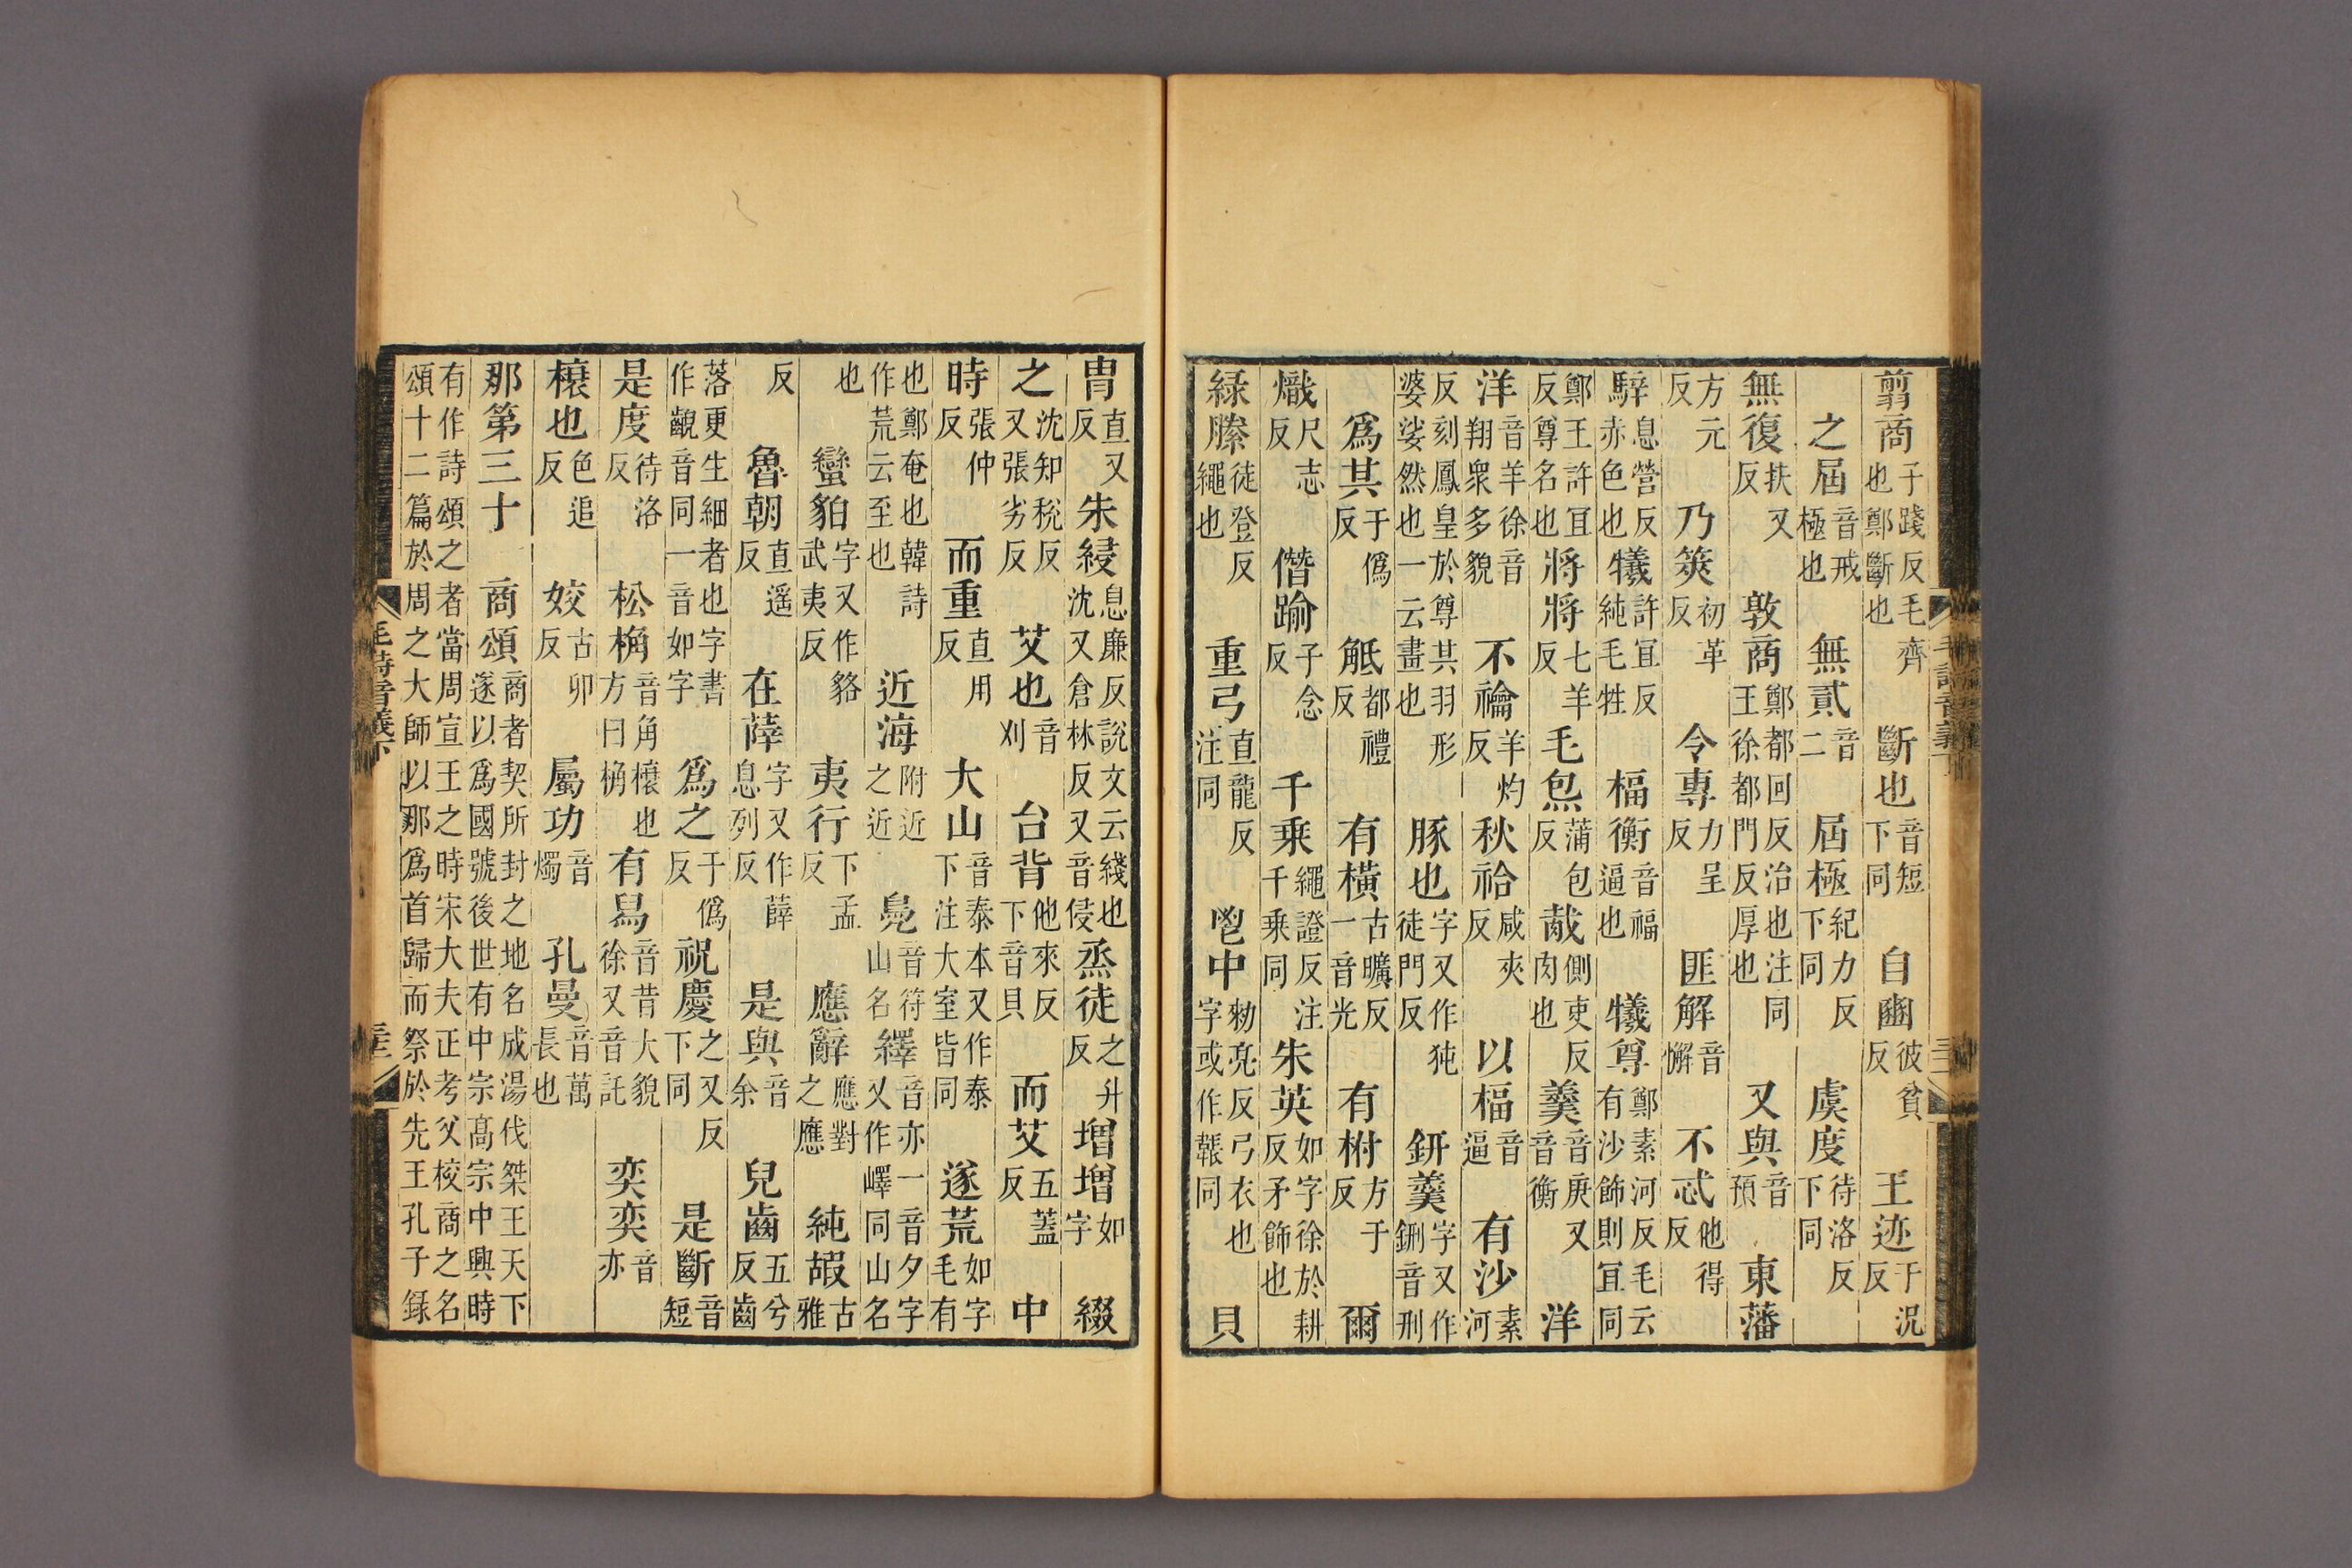 翦商子踐反毛齊也鄭斷也斷也音短下同自豳彼貧反王迹于況反
之屆音戒極也無貳音二屆極紀力反下同虞度待洛反下同
無復扶又反敦商鄭都回反治也注同王徐都門反厚也又與音預東藩
方元反乃筴初革反令專力呈反匪解音懈不忒他得反
騂息營反赤色也犧許宜反純毛牲楅衡音福逼也犧尊鄭素河反毛云有沙飾則宜同
鄭王許宜反尊名也將將七羊反毛炰蒲包反胾側吏反肉也羹音庚又音衡洋
洋音羊徐音翔衆多貌不禴羊灼反秋祫咸夾反以楅音逼有沙素河
反刻鳳皇於尊其羽形婆娑然也一云畫也豚也字又作㹠徒門反鈃羹字又作鉶音刑
爲其于僞反觝都禮反有橫古曠反一音光有柎方于反爾
熾尺志反僭踰子念反千乘繩證反注千乘同朱英如字徐於耕反矛飾也
緑縢徒登反繩也重弓直龍反注同鬯中勑亮反弓衣也字或作韔同貝
冑直又反朱綅息廉反說文云綫也沈又倉林反又音侵烝徒之升反增增如字綴
之沈知稅反又張劣反艾也音刈台背他來反下音貝而艾五蓋反中
時張仲反而重直用反大山音泰本又作泰下注大室皆同遂荒如字毛有
也鄭奄也韓詩作荒云至也近海附近之近鳧音符山名繹音亦一音夕字又作嶧同山名
也蠻貊字又作貉武夷反夷行下孟反應辭應對之應純嘏古雅
反魯朝直遥反在薛字又作薛息列反是與音余兒齒五兮反齒
落更生細者也字書作齯音同一音如字爲之于僞反祝慶之又反下同是斷音短
是度待洛反松桷音角榱也方曰桷有舄音昔大貌徐又音託奕奕音亦
榱也色追反姣古卯反屬功音燭孔曼音萬長也
那第三十商頌商者契所封之地名成湯伐桀王天下遂以爲國號後世有中宗髙宗中興時
有作詩頌之者當周宣王之時宋大夫正考父校商之名頌十二篇於周之大師以那爲首歸而祭於先王孔子録
毛詩音義下